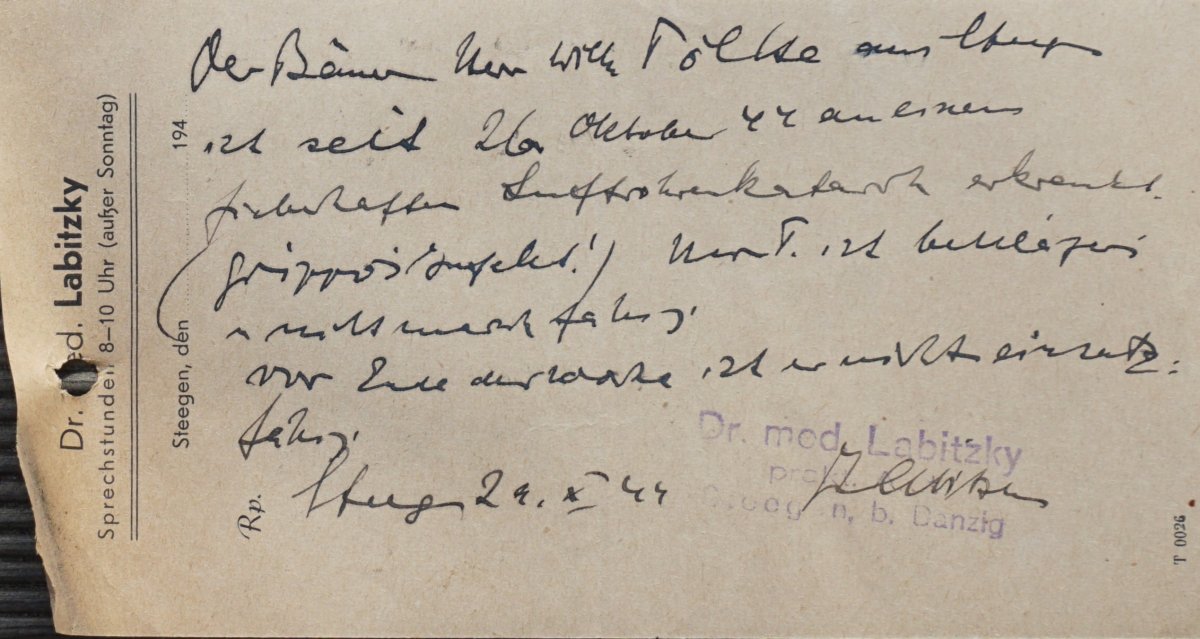 Dr. med. Labitzky
Sprechstunden 8–10 Uhr (außer Sonntag)
Steegen, den 194
Der Herr Willi Töltke aus
ist seit 26. Oktober 44 an einem
fieberhaften Luftröhrenkatarrh erkrankt.
(grippöser Infekt!) Herr T. ist bettlägerig
u nicht marschfähig.
vor Ende der Woche ist er nicht einsatz-
fähig.
Rp.
29. X 44
Dr. med. Labitzky
prakt.
Steegen, b. Danzig
T 0026